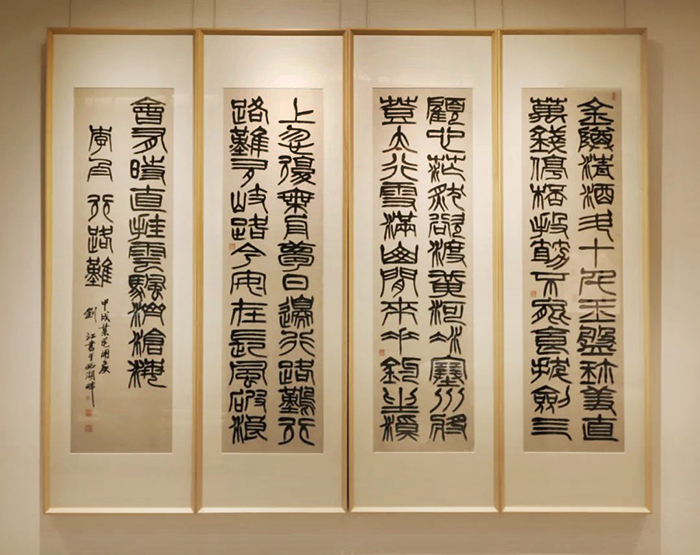 金樽清酒斗十千玉盤珍羞直
萬錢停桮投箸不能食拔劍四
顧心茫然欲渡黃河冰塞川將
登太行雪滿山閒來垂釣坐溪
上忽復乘舟夢日邊行路難行
路難多岐路今安在長風破浪
會有時直挂雲颿濟滄海
李白行路難
甲戌
劉江書于西湖畔